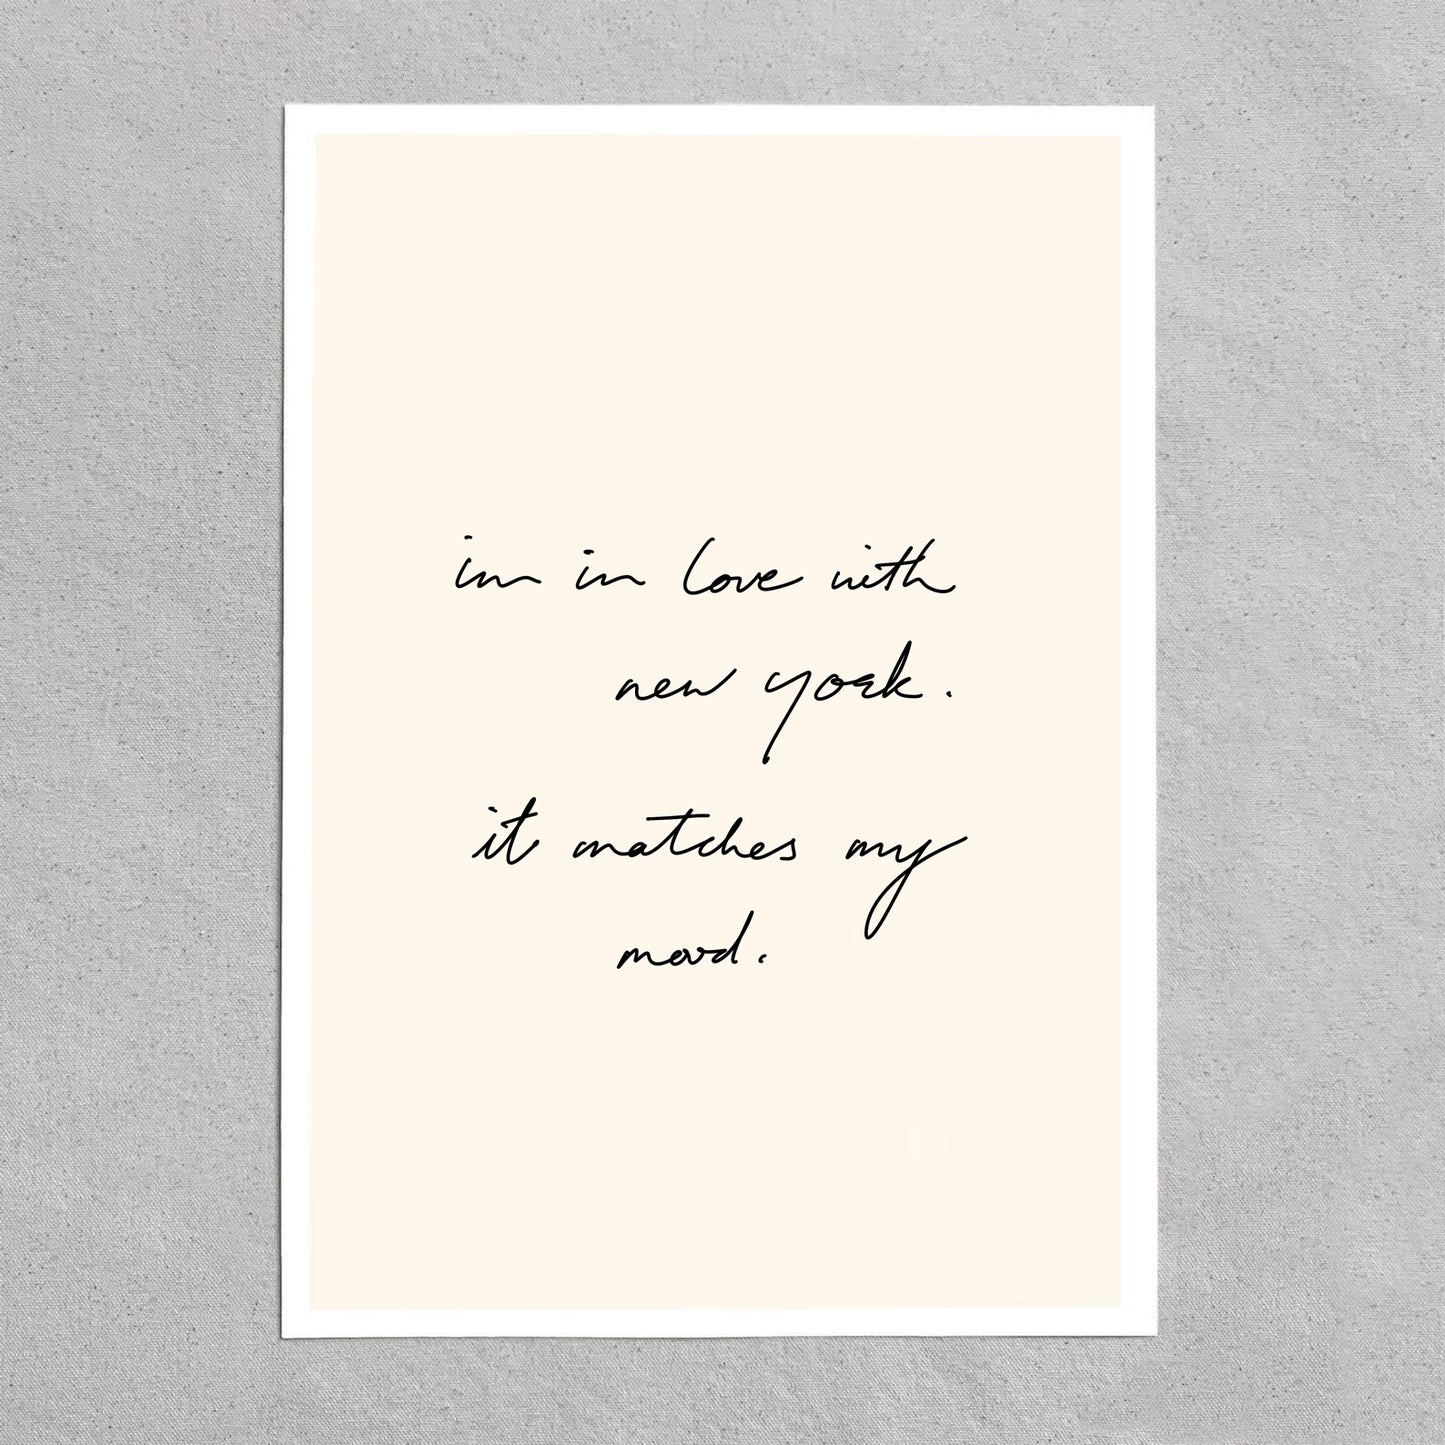 im in love with
new york.
it matches my
mood.